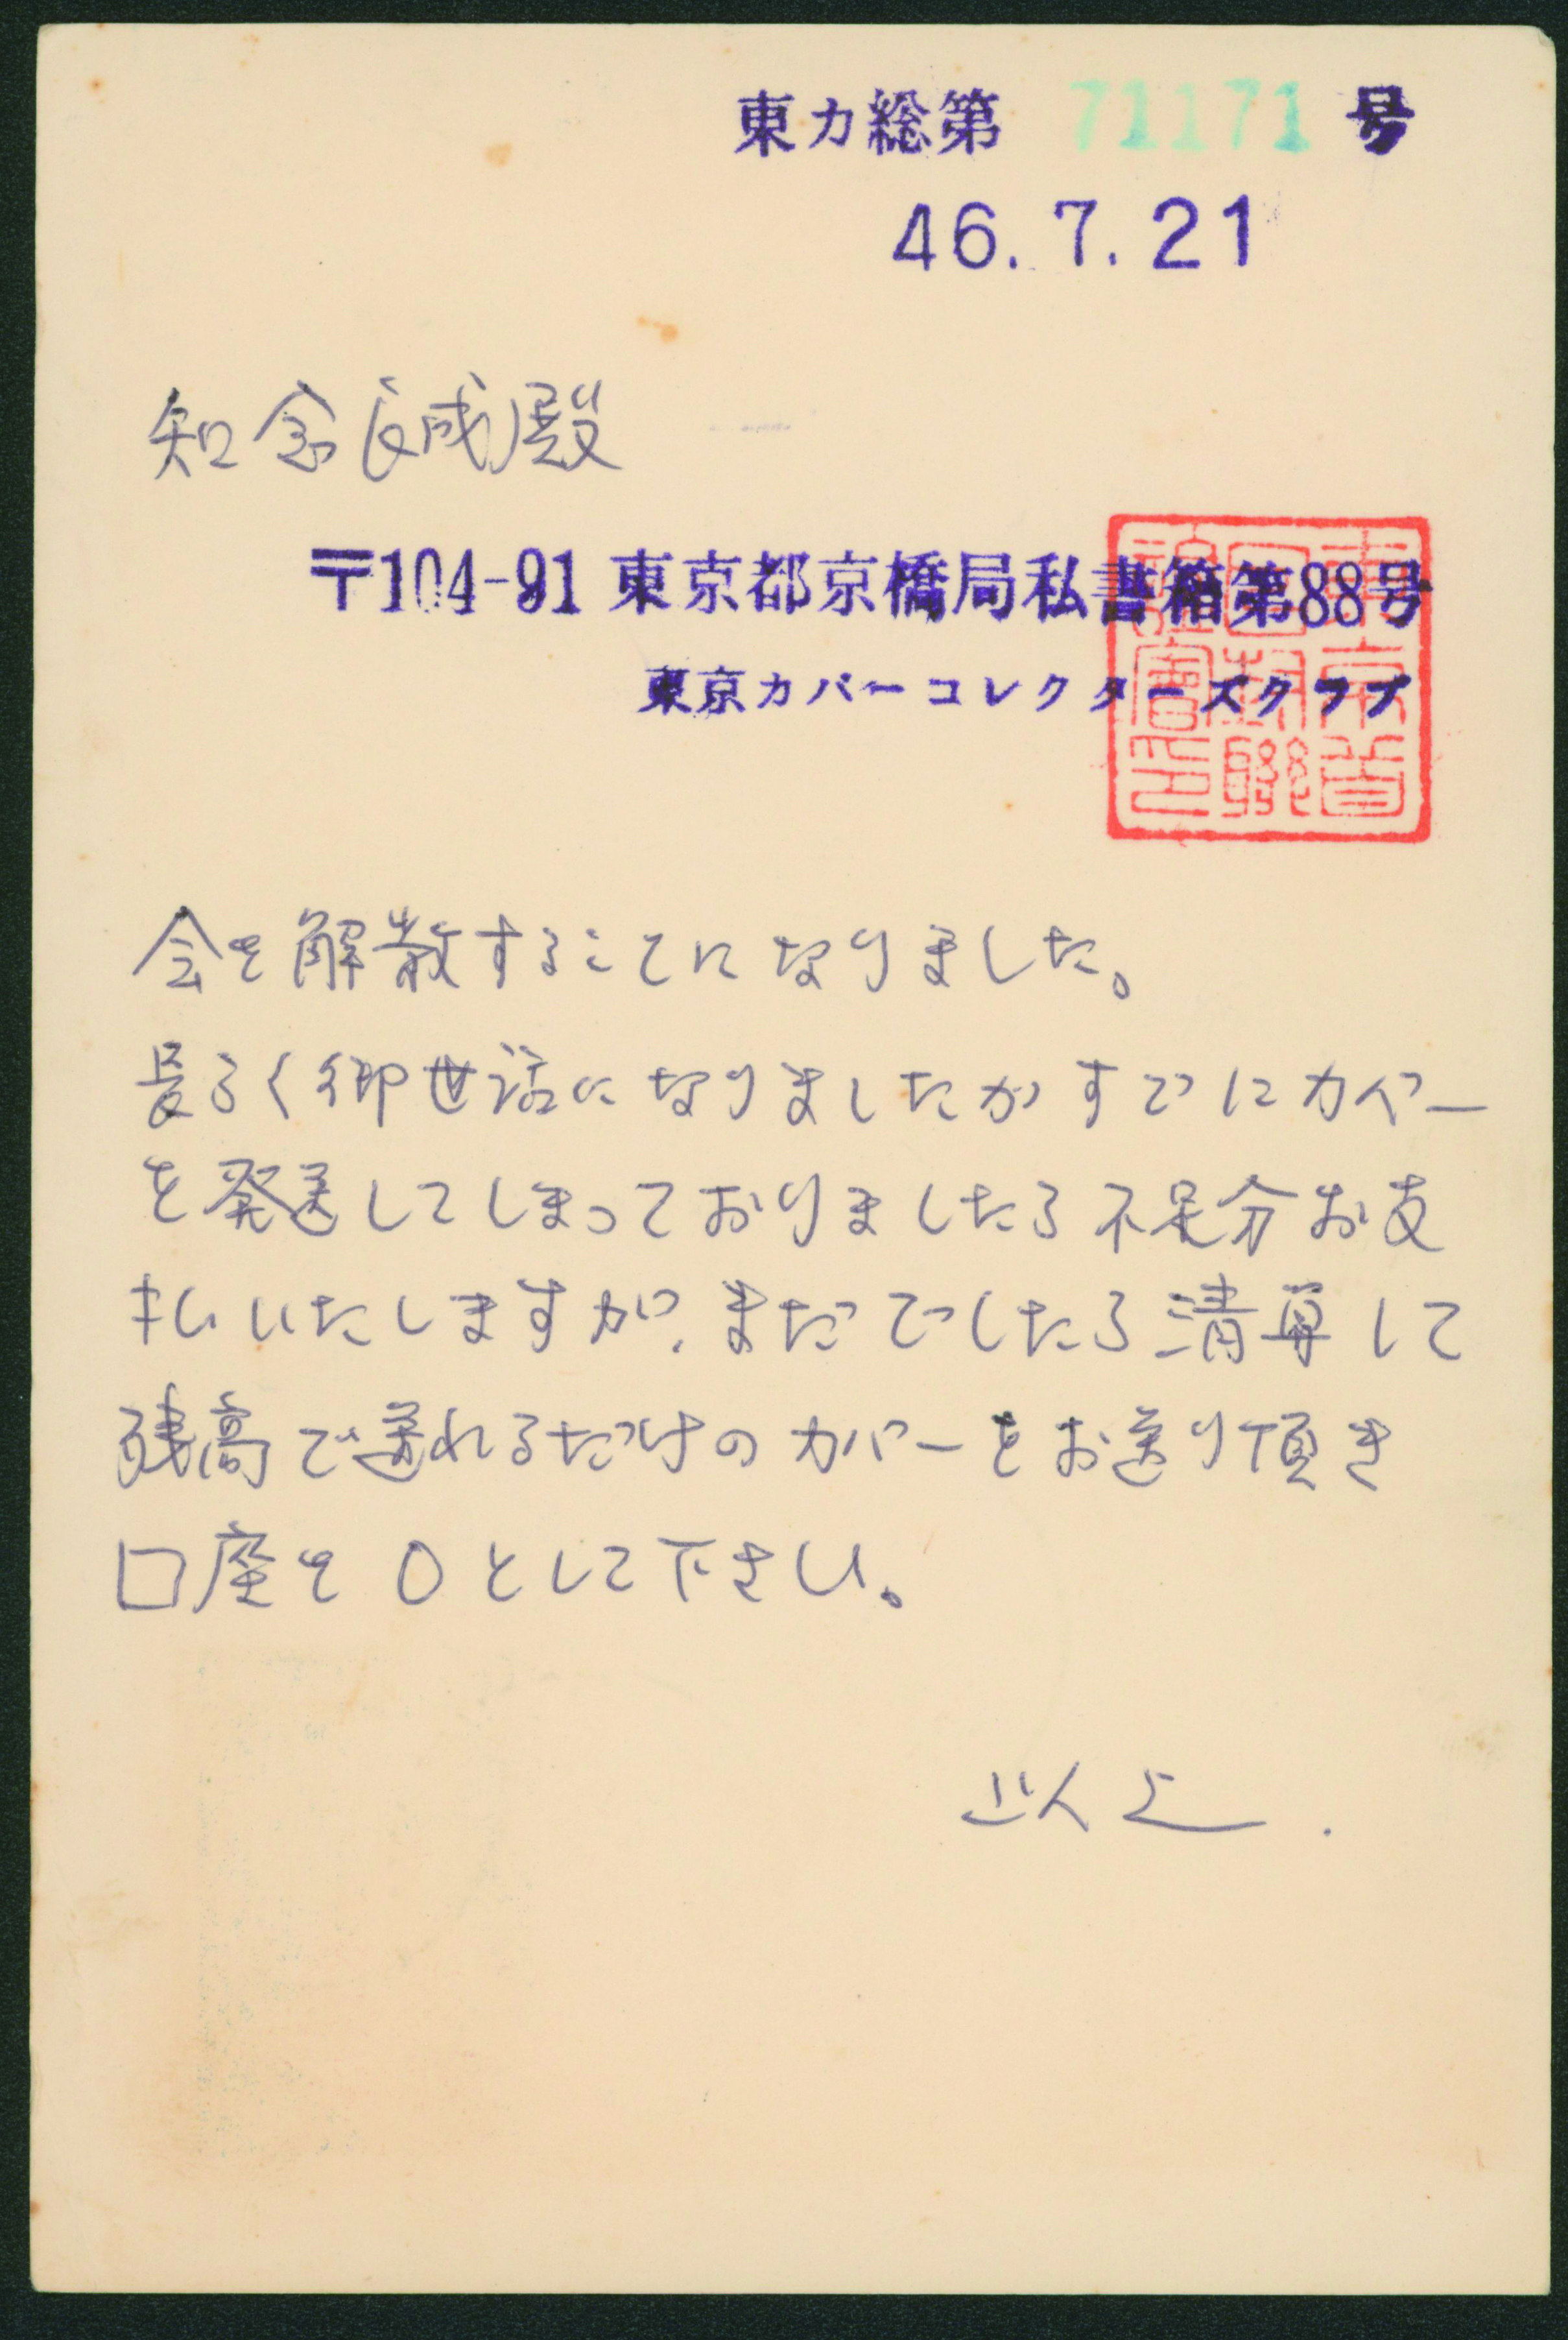 東カ総第 71171 号
46.7.21
知念良成殿
〒104-91 東京都京橋局私書箱第88号
東京カバーコレクターズクラブ
会を解散することになりました。
長らく御世話になりましたがすでにカバー
を発送してしまっておりましたら不足分お支
払いたしますが、まだでしたら清算して
残高で送れるだけのカバーをお送り頂き
口座を0として下さい。
以上.